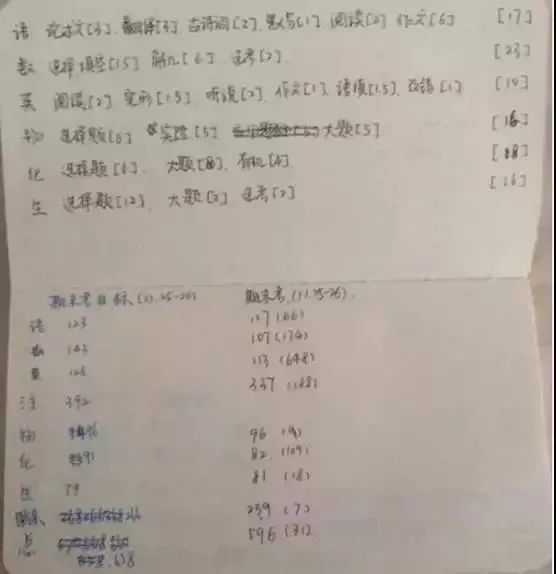 语 论述文[3]. 翻译[3] 古诗词[2]. 默写[1] 阅读[2] 作文[6] [17]
数 选择填空[15] 解几[6]. 选考[2]. [23]
英 阅读[2] 完形[1.5] 听说[2]. 作文[1]. 语填[1.5]. 改错[1] [10]
物 选择题[6] 实验[5] 大题[5] [16]
化 选择题[6]. 大题[8]. 有机[4]. [18]
生 选择题[12]. 大题[2] 选考[2] [16]
期末考目标(11.25-26) 期末考(11.25-26).
语 123 117(66)
数 143 107(174)
英 126 113(648)
392 337(188)
物 96 96(4)
化 91 82(109)
生 79 81(18)
266 259(7)
总 638 596(31)